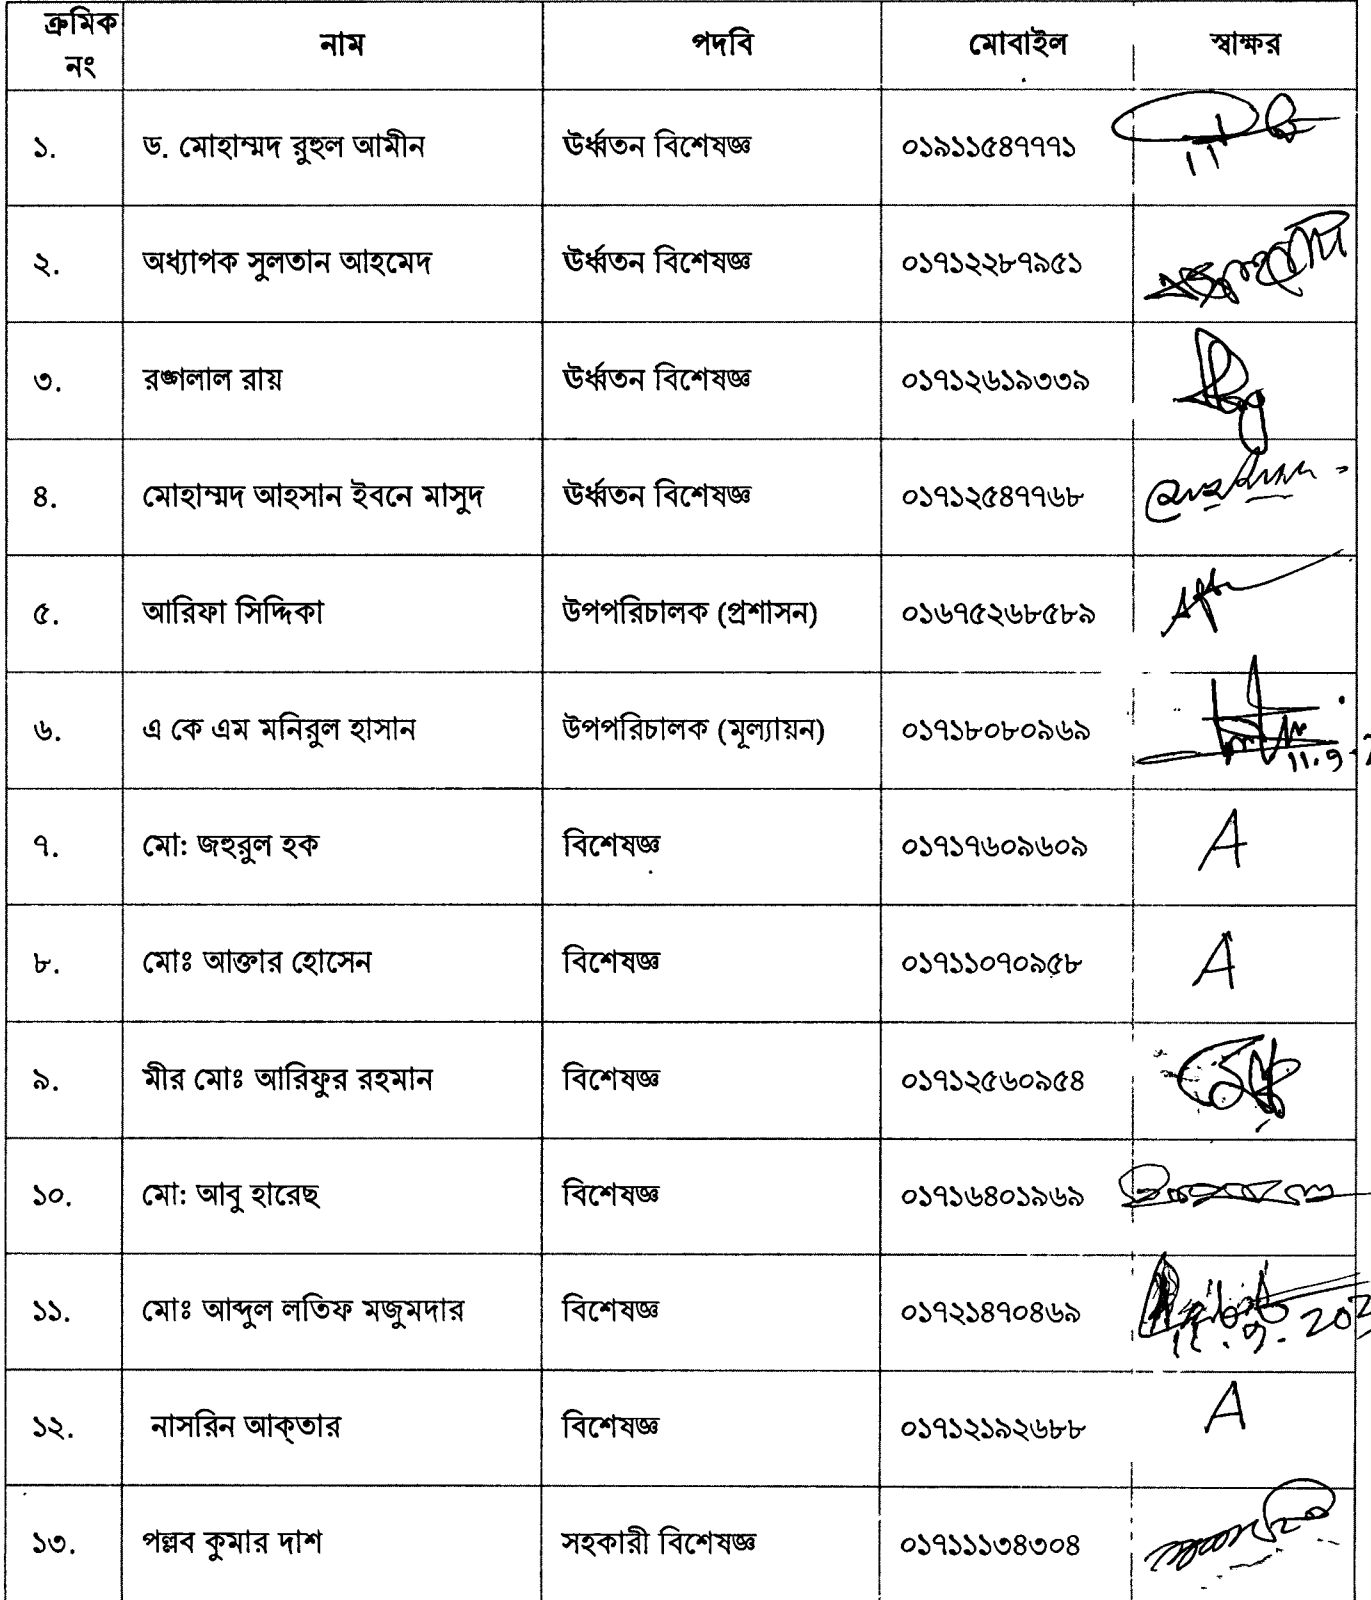 ক্রমিক নং নাম পদবি মোবাইল স্বাক্ষর
১. ড. মোহাম্মদ রুহুল আমীন ঊর্ধ্বতন বিশেষজ্ঞ ০১৯১১৫৪৭৭৭১
২. অধ্যাপক সুলতান আহমেদ ঊর্ধ্বতন বিশেষজ্ঞ ০১৭১২২৮৭৯৫১
৩. রঙ্গলাল রায় ঊর্ধ্বতন বিশেষজ্ঞ ০১৭১২৬১৯৩৩৯
৪. মোহাম্মদ আহসান ইবনে মাসুদ ঊর্ধ্বতন বিশেষজ্ঞ ০১৭১২৫৪৭৭৬৮
৫. আরিফা সিদ্দিকা উপপরিচালক (প্রশাসন) ০১৬৭৫২৬৮৫৮৯
৬. এ কে এম মনিরুল হাসান উপপরিচালক (মূল্যায়ন) ০১৭১৮০৮০৯৬৯
৭. মো: জহুরুল হক বিশেষজ্ঞ ০১৭১৭৬০৯৬০৯ A
৮. মোঃ আক্তার হোসেন বিশেষজ্ঞ ০১৭১১০৭০৯৫৮ A
৯. মীর মোঃ আরিফুর রহমান বিশেষজ্ঞ ০১৭১২৫৬০৯৫৪
১০. মো: আবু হারেছ বিশেষজ্ঞ ০১৭১৬৪০১৯৬৯
১১. মোঃ আব্দুল লতিফ মজুমদার বিশেষজ্ঞ ০১৭২১৪৭০৪৬৯
১২. নাসরিন আক্‌তার বিশেষজ্ঞ ০১৭১২১৯২৬৮৮ A
১৩. পল্লব কুমার দাশ সহকারী বিশেষজ্ঞ ০১৭১১১৩৪৩০৪